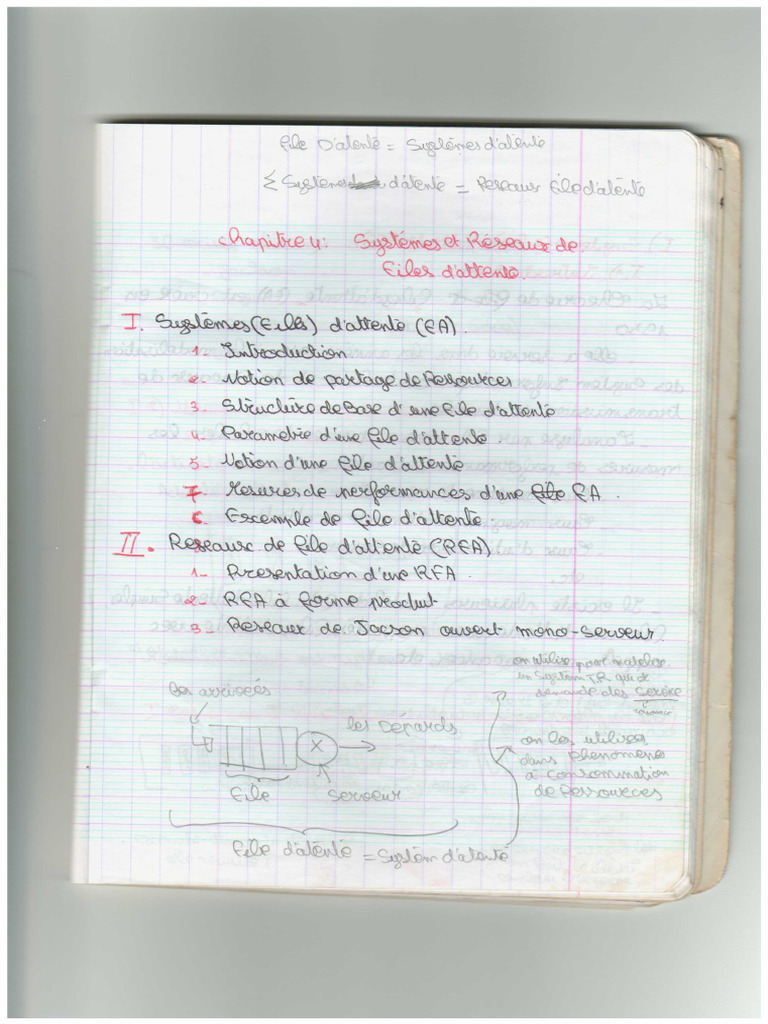 file D'atente = Systèmes d'atente
Σ Systèmes d'atente = Reseaux file d'atente
Chapitre 4: Systémes et Réseaux de
Files d'attente.
I. Systèmes (Fills) d'attente (FA).
1. Introduction
2. Notion de partage de Ressources
3. Structure de Base d'une file d'attente
4. Parametrie d'une file d'attente
5. Notion d'une file d'attente
7. Mesures de performances d'une file FA.
6. Escemple de file d'attente
II. Reseaux de file d'attente (RFA)
1- Presentation d'une RFA.
2- RFA à forme produit
3. Reseaux de Jacson ouvert mono-serveur.
on utilise pour
un System T.R que de
demande des service
les arriveés
les Départs
on les utilises
dans phenomene
à consommation
de Ressources
File
serveur
file d'atente = System d'atente